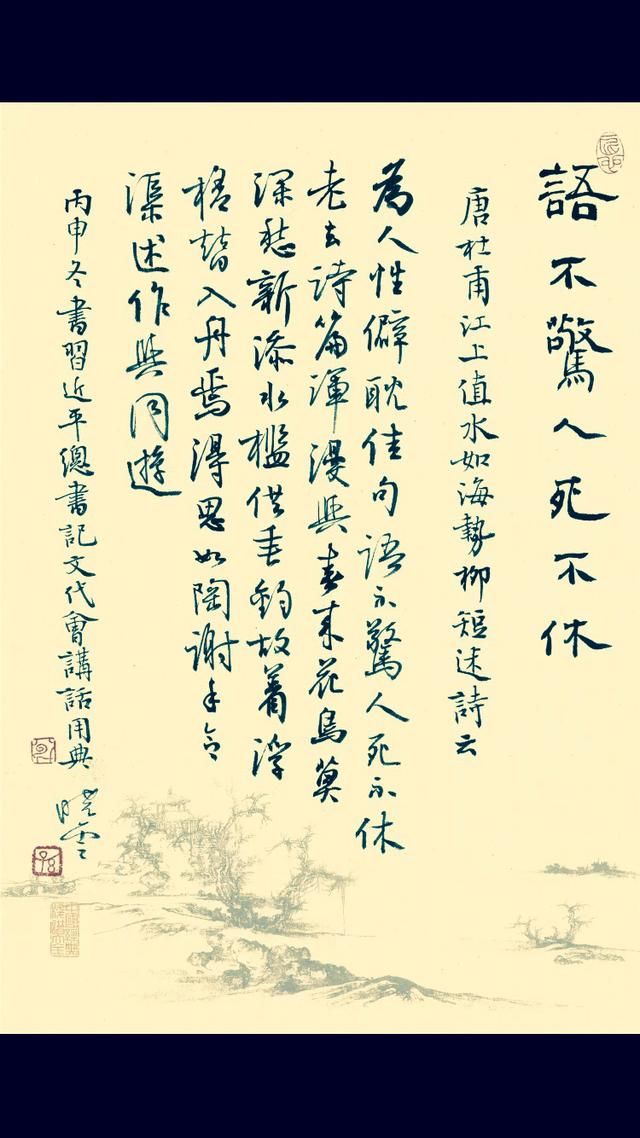 語不驚人死不休
唐杜甫江上值水如海勢柳短述詩云
為人性僻耽佳句語不驚人死不休
老去詩篇渾漫與春來花鳥莫
深愁新添水檻供垂釣故着浮
槎替入舟焉得思如陶謝手令
渠述作與同遊
丙申冬書習近平總書記文代會講話用典
曉雲